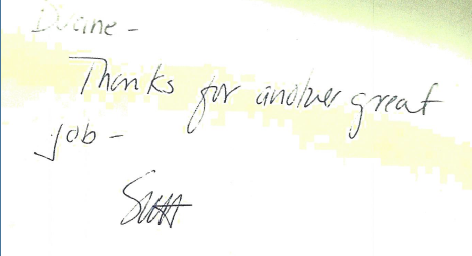 Duane -
Thanks for another great
job -
Scott